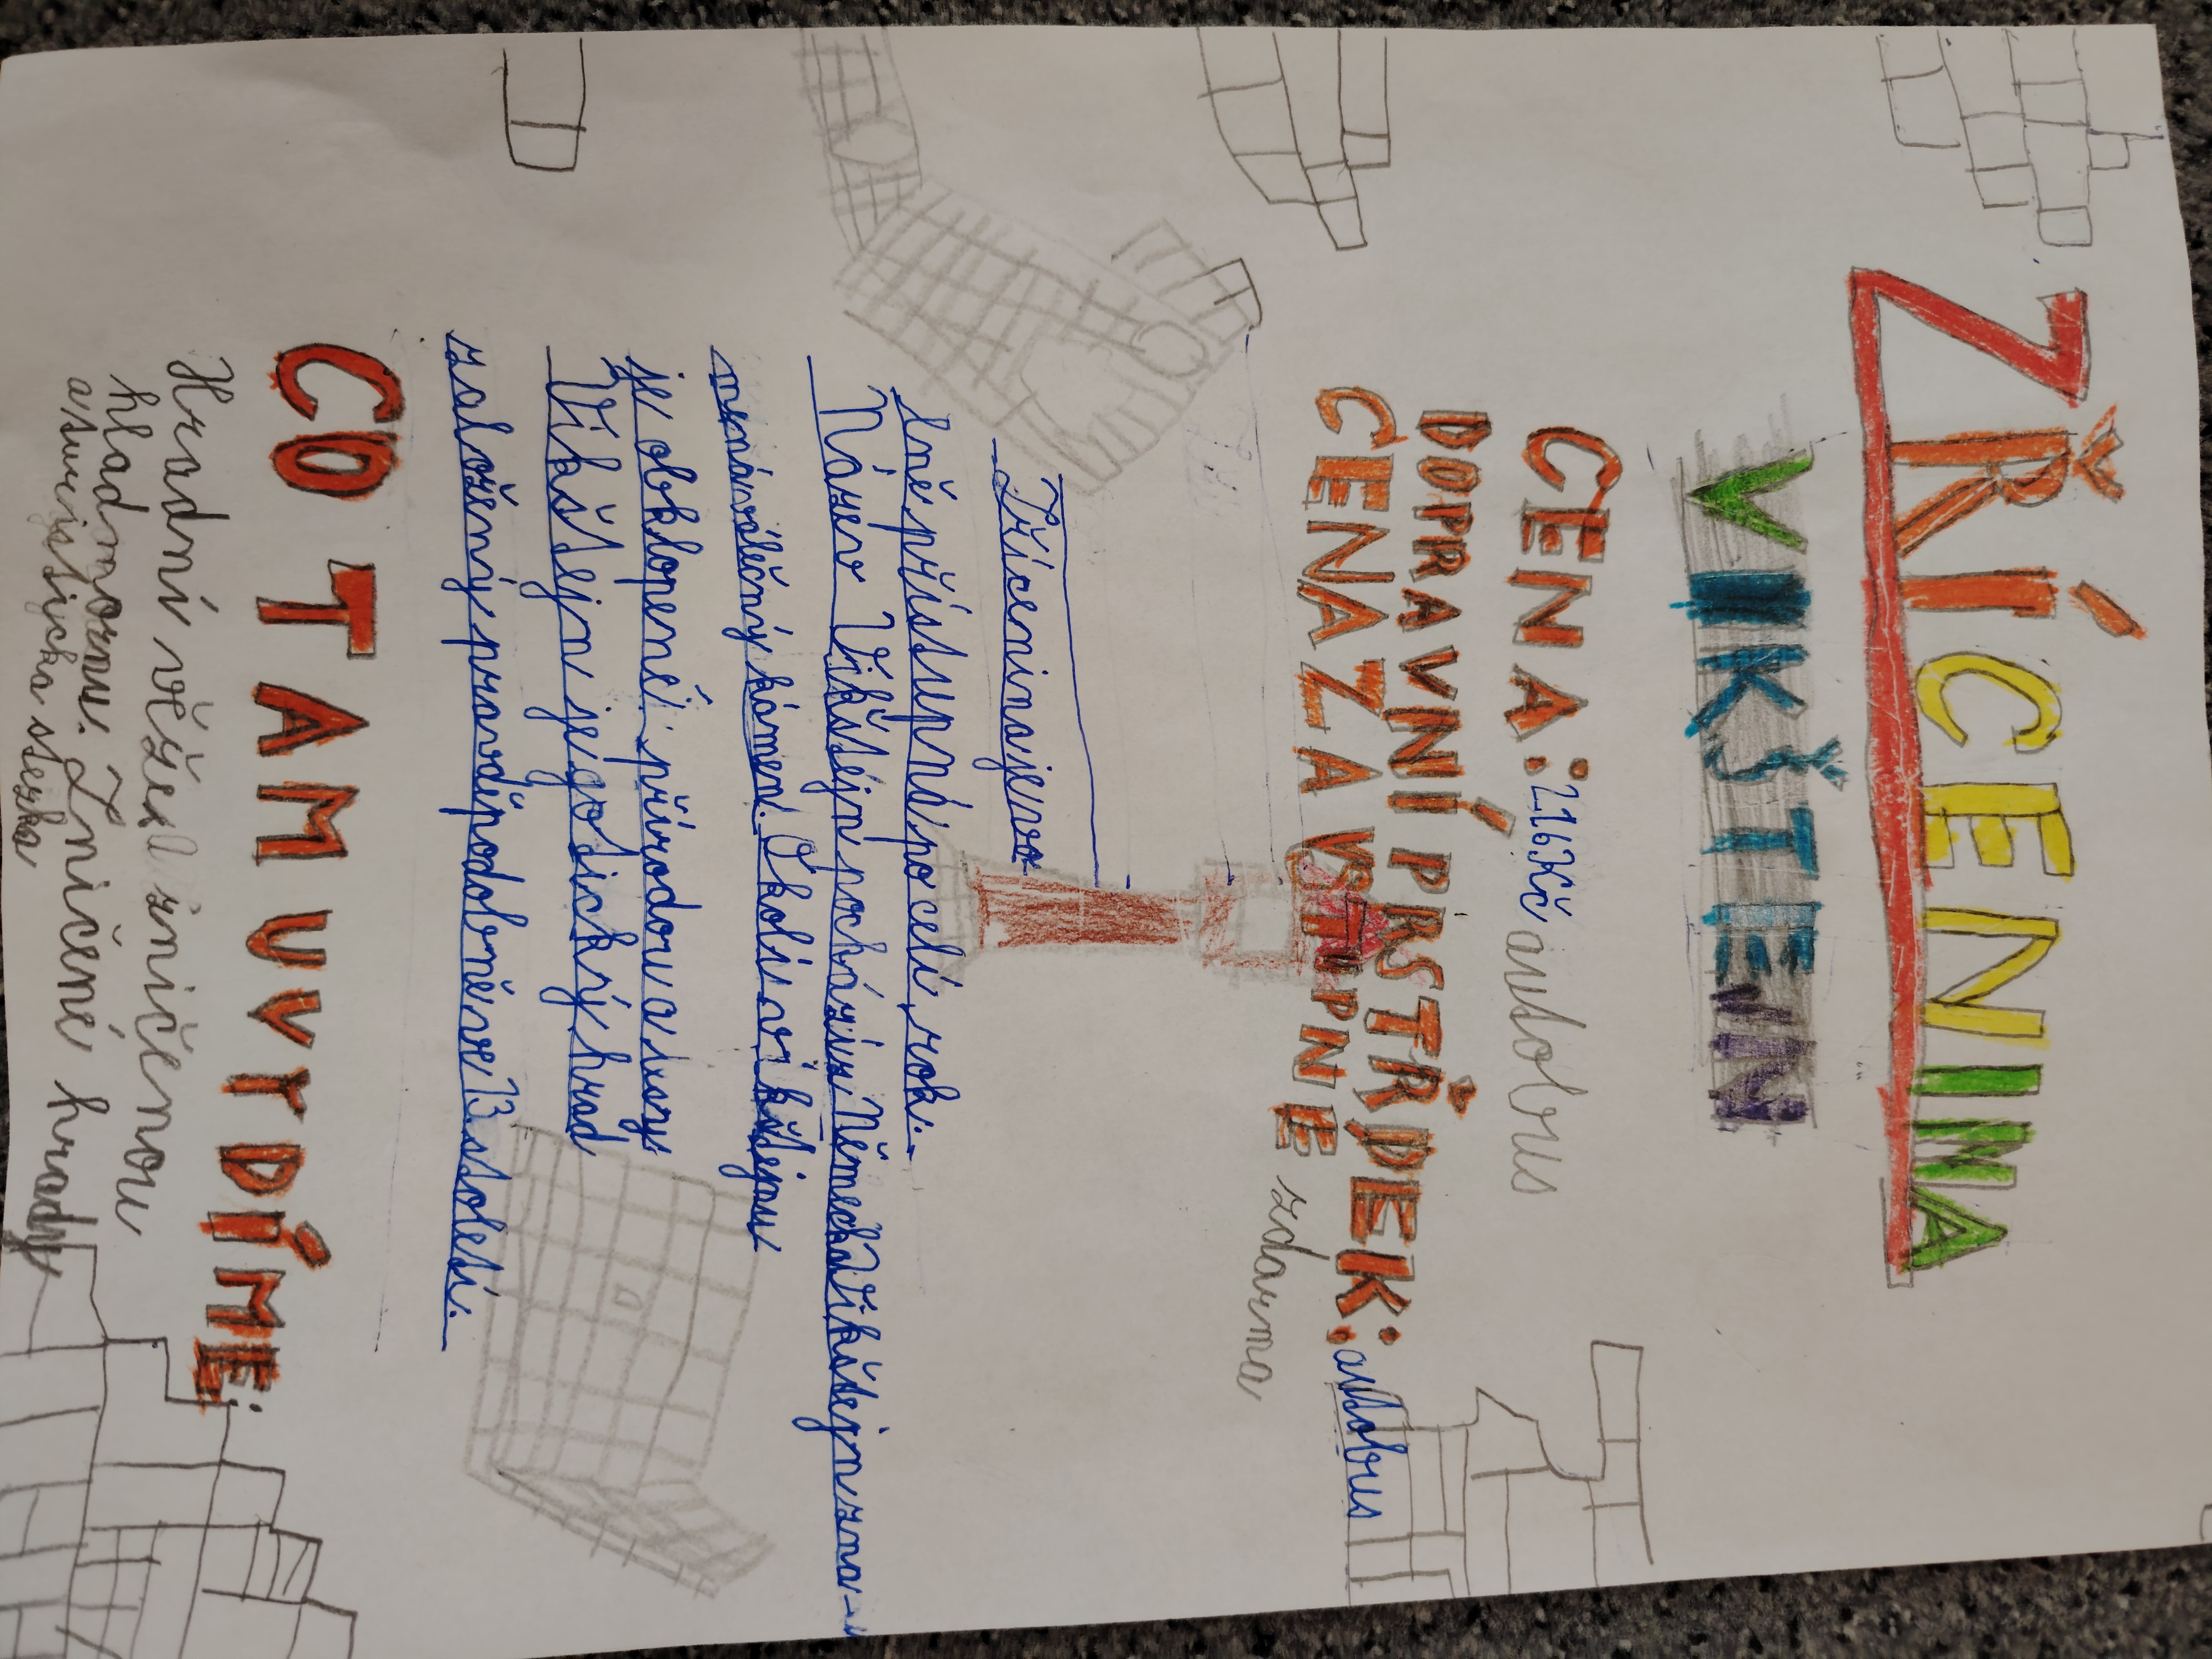 ZŘÍCENINA
VIKŠTEJN
CENA: 216Kč autobus
DOPRAVNÍ PRSTŘDEK: autobus
CENA ZA VSTUPNE zdarma
Zřícenina je vo-
lně přístupná po celí rok.
Název Vikštejn pochází z Německa Vikštejn zna-
mená válečný kámen. Okolí vikštejnu
je obklopené přírodou a lesy
Vikštejn je gotický hrad
založený pravděpodobně ve 13 století.
CO TAM UVYDÍME:
Hradní věže zničenou
hladmornu. Zničené hrady
a turistická stezka